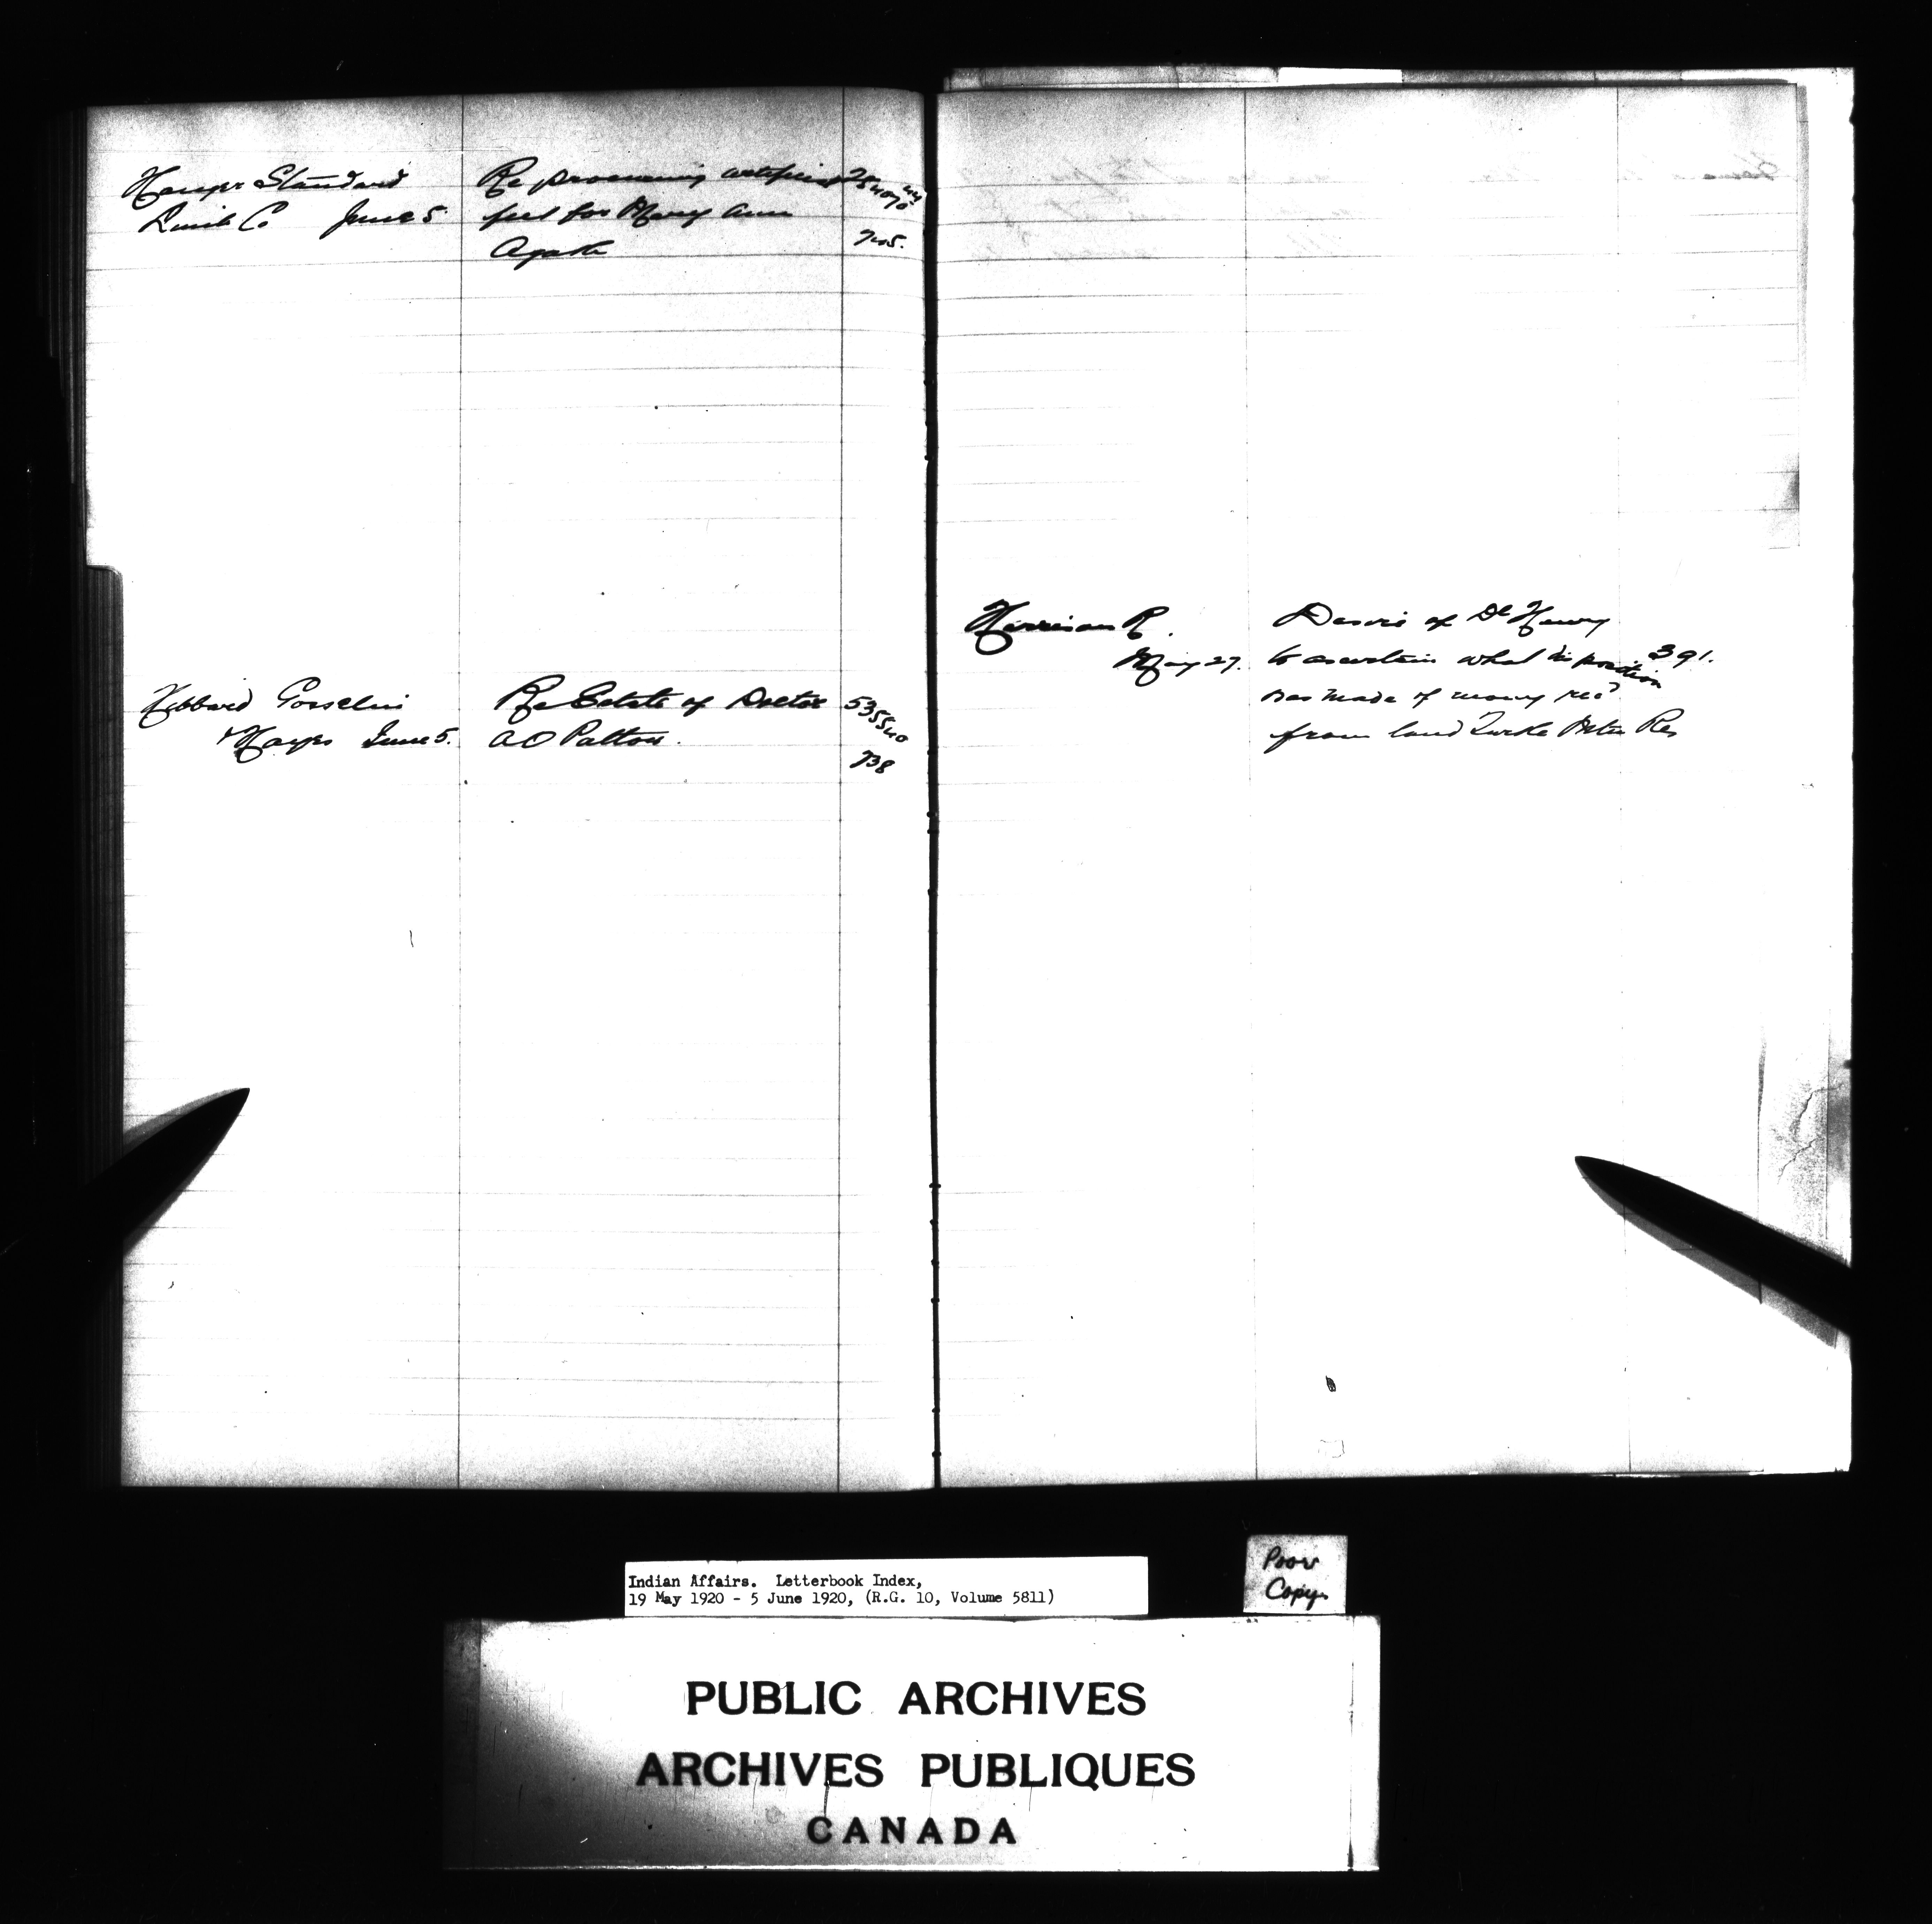 Hanger Standard
Limb Co June 5
Re procuring artificial
feet for Mary Ann
Agath
745.
Hibbard Gosselin
& Hayes June 5.
Re Estate of Doctor
A O Patton.
535540
738
Harrison R.
May 27.
Desire of De Henry
to ascertain what disposition
was made of money rec'd
from land Turtle Mtn Res
391.
Poor
Copy
Indian Affairs. Letterbook Index,
19 May 1920 - 5 June 1920, (R.G. 10, Volume 5811)
PUBLIC ARCHIVES
ARCHIVES PUBLIQUES
CANADA